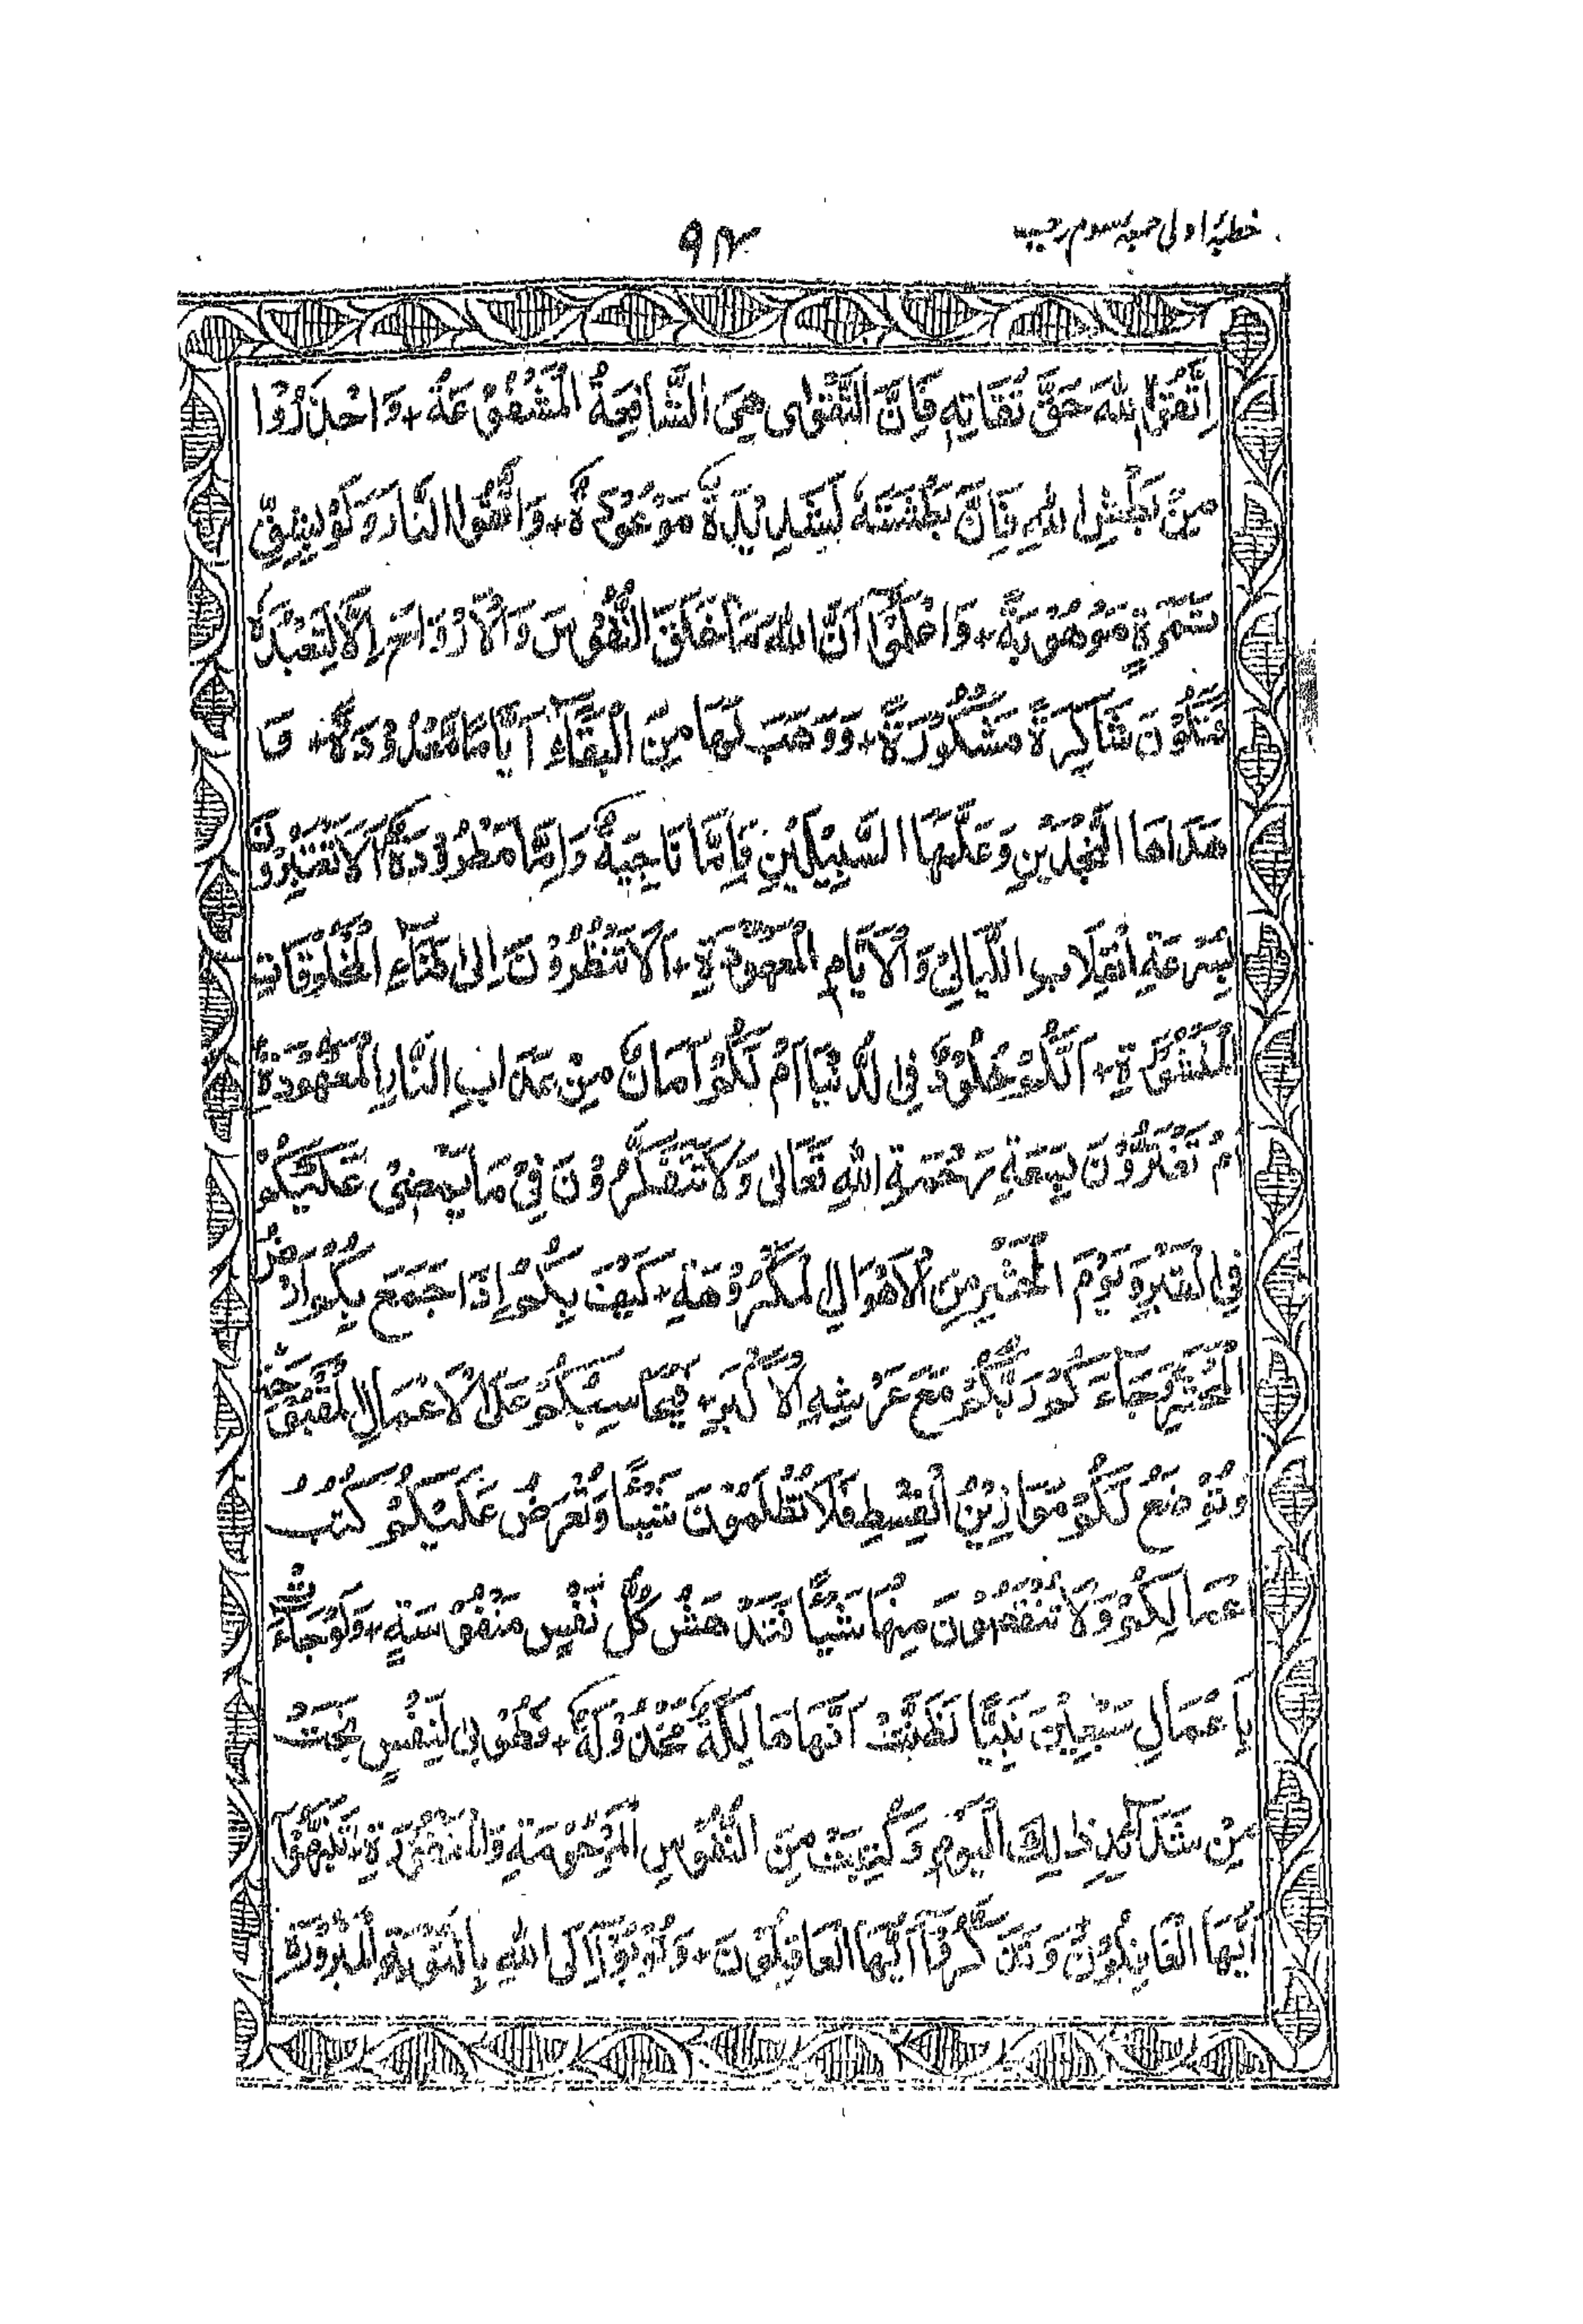 خطبۂ اولی جمعہ سوم رجب
۹۲
اِتَّقُوا اللهَ حَقَّ تُقَاتِهٖ فَاِنَّ التَّقْوٰى هِىَ الشَّافِعَةُ الْمُشَفَّعَةُ + وَاحْذَرُوْا
مِنْ بَطْشِ اللهِ فَاِنَّ بَطْشَتَهٗ لَشَدِيْدَةٌ مَوْعُوْدَةٌ + وَاتَّقُوا النَّارَ وَلَوْ بِشِقِّ
تَمْرَةٍ مَوْهُوْبَةٍ + وَاعْلَمُوْا اَنَّ اللهَ مَا خَلَقَ النُّفُوْسَ وَالْاَرْوَاحَ اِلَّا لِتَعْبُدَهٗ
فَتَكُوْنَ شَاكِرَةً مَشْكُوْرَةً + وَوَهَبَ لَهَا مِنَ الْبَقَاءِ اَيَّامًا مَعْدُوْدَةً + وَ
هَدَاهَا النَّجْدَيْنِ وَعَلَّمَهَا السَّبِيْلَيْنِ فَاِمَّا نَاجِيَةٌ وَاِمَّا مَطْرُوْدَةٌ اَلَا تَعْتَبِرُوْنَ
بِسُرْعَةِ انْقِلَابِ اللَّيَالِىْ وَالْاَيَّامِ الْمَعْهُوْدَةِ + اَلَا تَنْظُرُوْنَ اِلٰى فَنَاءِ الْمَخْلُوْقَاتِ
الْمَنْشُوْرَةِ + اَلَكُمْ خُلُوْدٌ فِى الدُّنْيَا اَمْ لَكُمْ اَمَانٌ مِنْ عَذَابِ النَّارِ الْمَعْهُوْدَةِ
اَمْ تَغْتَرُّوْنَ بِسَعَةِ رَحْمَةِ اللهِ تَعَالٰى وَلَا تَتَفَكَّرُوْنَ فِىْ مَا يَمْضِىْ عَلَيْكُمْ
فِى الْقَبْرِ وَيَوْمِ الْمَحْشَرِ مِنَ الْاَهْوَالِ الْمَكْرُوْهَةِ + كَيْفَ بِكُمْ اِذَا جَمَعَ بِكُمْ اَرْضُ
الْمَحْشَرِ وَجَاءَكُمْ رَبُّكُمْ مَعَ عَرْشِهِ الْاَكْبَرِ + فَيُحَاسِبُكُمْ عَلَى الْاَعْمَالِ الْمَقْبُوْحَةِ
وَتُوْضَعُ لَكُمْ مَوَازِيْنُ الْقِسْطِ فَلَا تُظْلَمُوْنَ شَيْئًا وَتُعْرَضُ عَلَيْكُمْ كُتُبُ
اَعْمَالِكُمْ وَلَا تَنْقُصُوْنَ مِنْهَا شَيْئًا فَتَدْهَشُ كُلُّ نَفْسٍ مَنْفُوْسَةٍ + وَلَوْ جَاءَتْ
بِاَعْمَالِ سَبْعِيْنَ نَبِيًّا لَظَنَّتْ اَنَّهَا هَالِكَةٌ مَخْذُوْلَةٌ + فَطُوْبٰى لِنَفْسٍ نَجَتْ
مِنْ شَدَائِدِ ذٰلِكَ الْيَوْمِ وَكُتِبَتْ مِنَ النُّفُوْسِ الْمَرْحُوْمَةِ وَالْمَغْفُوْرَةِ + تَنَبَّهُوْا
اَيُّهَا الْغَافِلُوْنَ وَتَذَكَّرُوْا اَيُّهَا الْعَاقِلُوْنَ + وَتُوْبُوْا اِلَى اللهِ بِالتَّوْبَةِ الْمَبْرُوْرَةِ